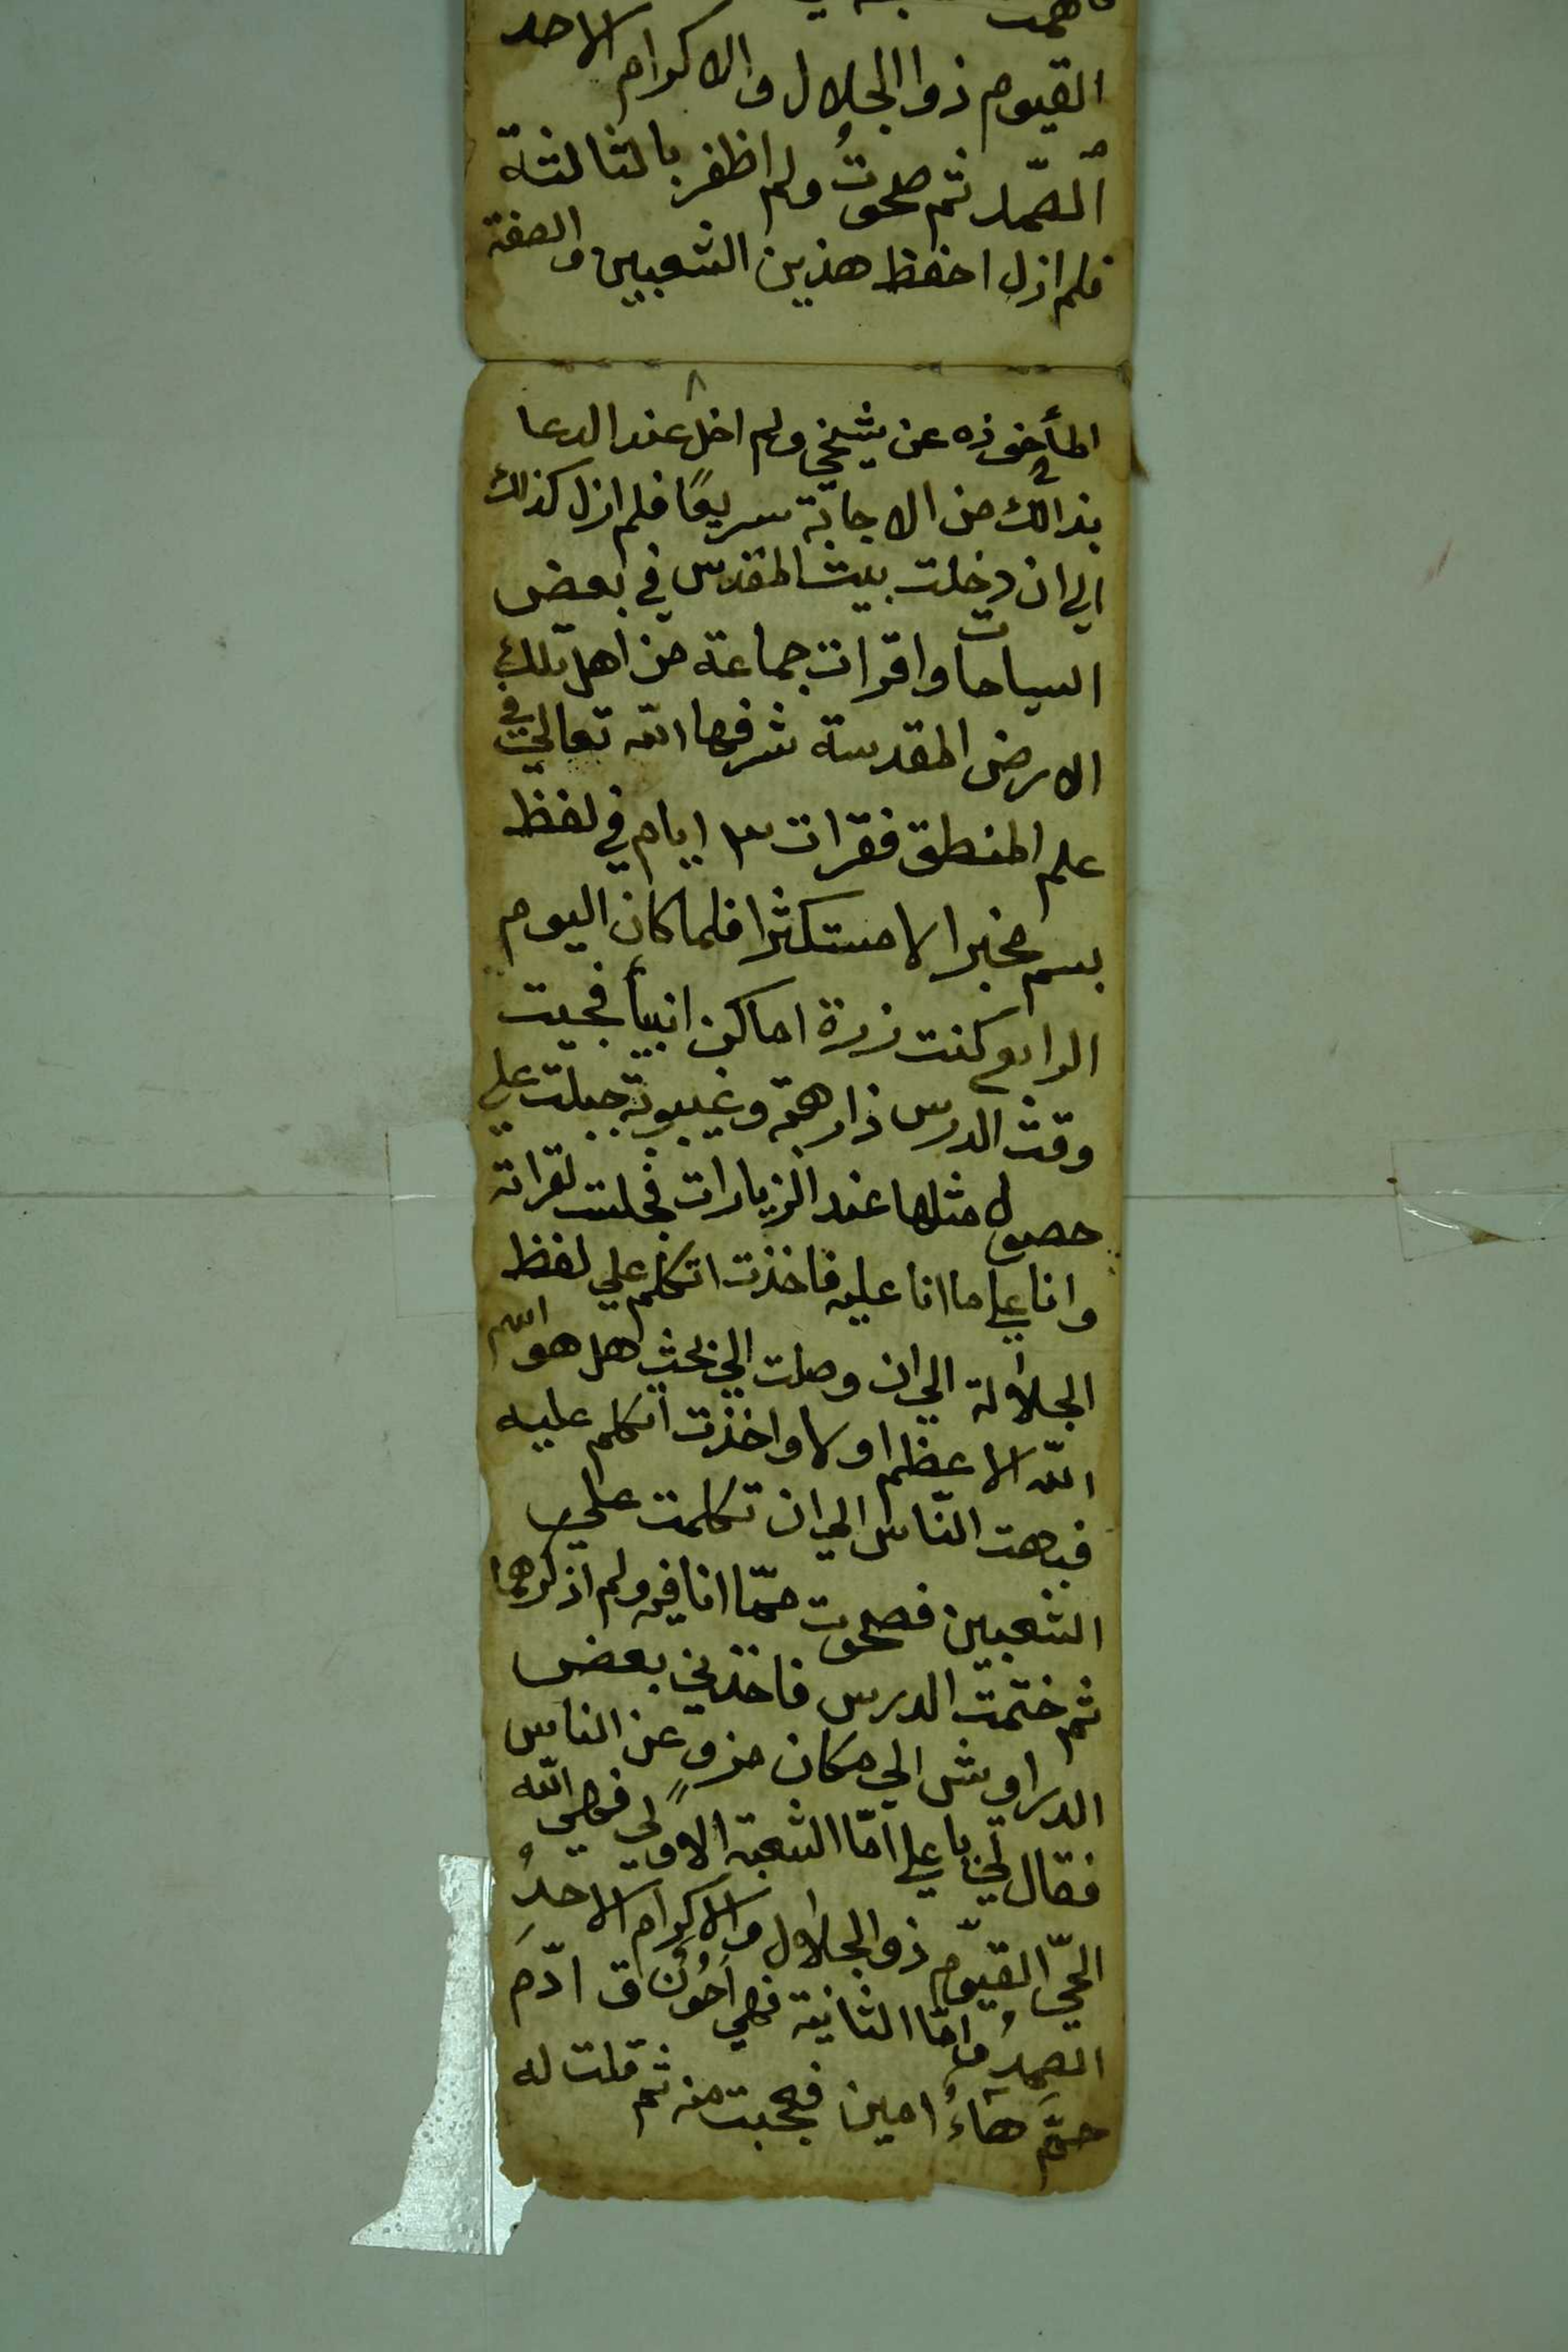 القيوم ذوا الجلال والاكرام الاحد
الصّمد ثم صحوتُ ولم اظفر بالثالثة
فلم ازل احفظ هذين الشعبين والصفة
٨
المأخوذه عن شيخي ولم اخل عند الدعا
بذالك من الاجابة سريعًا فلم ازل كذلك
الي ان دخلت بيت المقدس في بعض
السياحات واقرات جماعة من اهل تلك
الارض المقدسة شرفها الله تعالي في
علم المنطق فقرات ٣ ايام في لفظ
بسم مخبرا لا مستكثرا فلما كان اليوم
الرابع كنت زرة اماكن انبيأ فجيت
وقت الدرس ذا رهمة وغيبوبة جبلت علي
حصول مثلها عند الزيارات فجلست لقراته
وانا علي ما انا عليه فاخذت اتكلم علي لفظ
الجلالة الي ان وصلت الي بحث هل هو اسم
الله الاعظم اولا واخذت اتكلم عليه
فبهت النّاس الي ان تكلمت علي
الشعبين فصحوت ممّا انا فيه ولم اذكرهما
ثم ختمت الدرس فاخذني بعض
الدراويش الي مكان منزو عن الناس
فقال لي يا علي امّا الشعبة الاولي فهي الله
الحيّ القيّوم ذو الجلال والاكرام الاحدُ
الصمدُ وامّا الثانية فهي احون ق ادّم
حمّ هاءُ امين فعجبت منه ثم قلت له